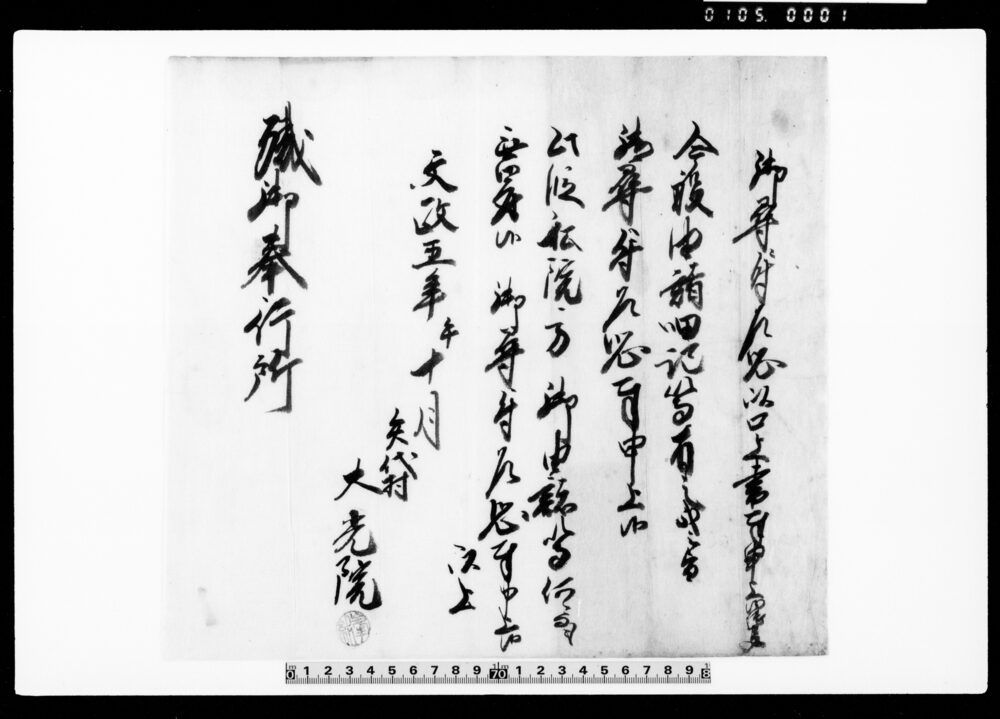 0105. 0001
御尋ニ付乍恐以口上書奉申上候事
今般由緒旧記等有之哉之旨
御尋ニ付乍恐奉申上候
此段私院ニ而者御由緒等何ニ而も
無御座候 御尋ニ付乍恐奉申上候
以上
文政五年午十月
矢代村
大光院
殿御奉行所
0 1 2 3 4 5 6 7 8 9 10 1 2 3 4 5 6 7 8 9